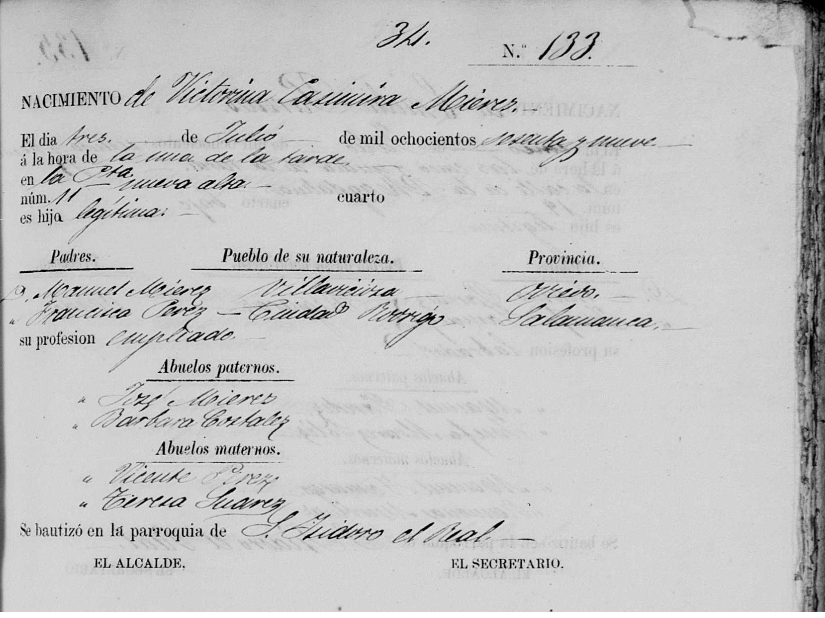 34.
N.º 133.
NACIMIENTO de Victorina Casimira Mierez.
El dia tres. de Julio de mil ochocientos sesenta y nueve
á la hora de la una de la tarde
en la Pta nueva alta.
núm. 11 cuarto
es hija legítima.
Padres. Pueblo de su naturaleza. Provincia.
D. Manuel Mierez Villaviciosa Oviedo.
" Francisca Perez — Ciudad Rodrigo Salamanca.
su profesion empleado.
Abuelos paternos.
" José Mierez
" Barbara Costalez
Abuelos maternos.
" Vicente Perez
" Teresa Suarez
Se bautizó en la parroquia de S. Isidoro el Real.
EL ALCALDE. EL SECRETARIO.